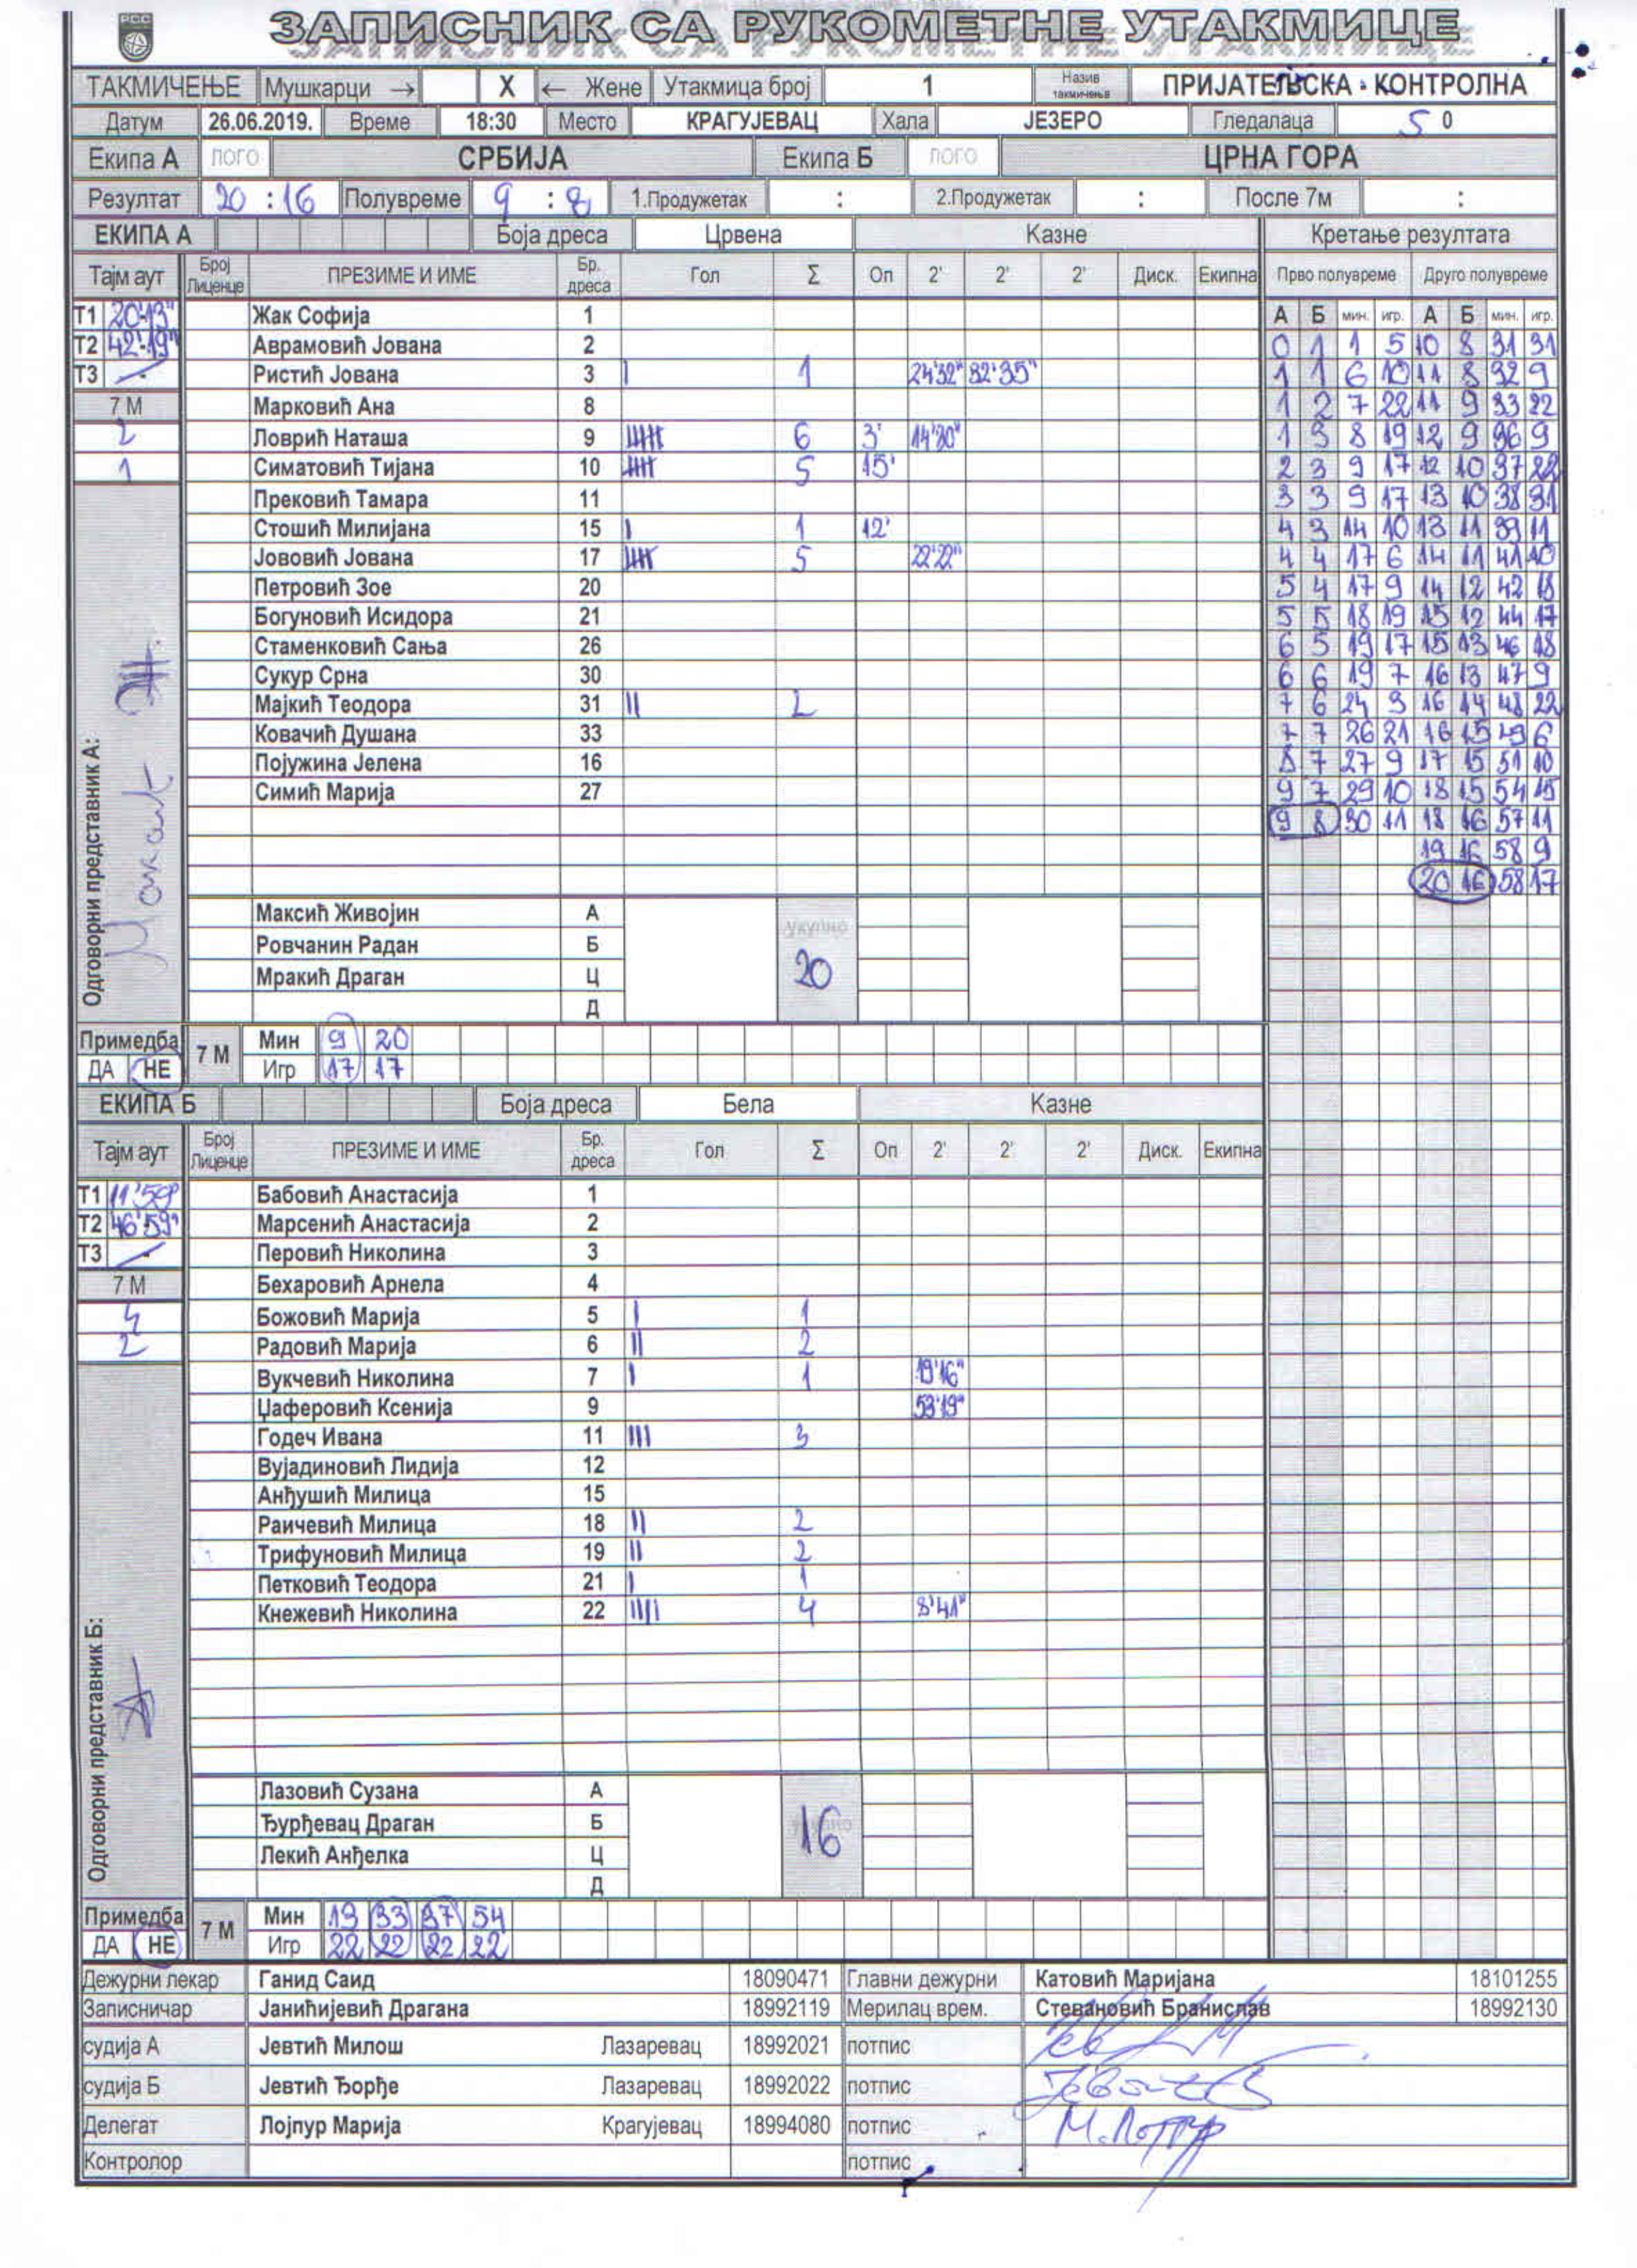 РСС
ЗАПИСНИК СА РУКОМЕТНЕ УТАКМИЦЕ
ТАКМИЧЕЊЕ Мушкарци → X ← Жене Утакмица број 1 Назив такмичења ПРИЈАТЕЉСКА - КОНТРОЛНА
Датум 26.06.2019. Време 18:30 Место КРАГУЈЕВАЦ Хала ЈЕЗЕРО Гледалаца 50
Екипа А ЛОГО СРБИЈА Екипа Б ЛОГО ЦРНА ГОРА
Резултат 20 : 16 Полувреме 9 : 8 1.Продужетак : 2.Продужетак : После 7м :
ЕКИПА А Боја дреса Црвена Казне Кретање резултата
Тајм аут Број Лиценце ПРЕЗИМЕ И ИМЕ Бр. дреса Гол Σ Оп 2' 2' 2' Диск. Екипна Прво полувреме Друго полувреме
Т1 20'13" Жак Софија 1 А Б мин. игр. А Б мин. игр.
Т2 42'19" Аврамовић Јована 2 0 1 1 5 10 8 31 31
Т3 - Ристић Јована 3 1 24'32" 32'35" 1 1 6 10 11 8 32 9
7 М Марковић Ана 8 1 2 7 22 11 9 33 22
2 Ловрић Наташа 9 6 3' 14'30" 1 3 8 19 12 9 36 9
1 Симатовић Тијана 10 5 15' 2 3 9 17 12 10 37 22
Прековић Тамара 11 3 3 9 17 13 10 38 31
Стошић Милијана 15 1 12' 4 3 14 10 13 11 39 11
Јововић Јована 17 5 22'22" 4 4 17 6 14 11 41 10
Петровић Зое 20 5 4 17 9 14 12 42 18
Богуновић Исидора 21 5 5 18 19 15 12 44 17
Стаменковић Сања 26 6 5 19 17 15 13 46 18
Сукур Срна 30 6 6 19 7 16 13 47 9
Мајкић Теодора 31 2 7 6 24 3 16 14 48 22
Ковачић Душана 33 7 7 26 21 16 15 49 6
Појужина Јелена 16 8 7 27 9 17 15 51 10
Симић Марија 27 9 7 29 10 18 15 54 15
9 8 30 11 18 16 57 11
19 16 58 9
20 16 58 17
Одговорни представник А:
Максић Живојин А укупно
Ровчанин Радан Б 20
Мракић Драган Ц
Д
Примедба 7 М Мин 9 20
ДА НЕ Игр 17 17
ЕКИПА Б Боја дреса Бела Казне
Тајм аут Број Лиценце ПРЕЗИМЕ И ИМЕ Бр. дреса Гол Σ Оп 2' 2' 2' Диск. Екипна
Т1 11'59" Бабовић Анастасија 1
Т2 46'59" Марсенић Анастасија 2
Т3 - Перовић Николина 3
7 М Бехаровић Арнела 4
4 Божовић Марија 5 1
2 Радовић Марија 6 2
Вукчевић Николина 7 1 19'16"
Џаферовић Ксенија 9 53'19"
Годеч Ивана 11 3
Вујадиновић Лидија 12
Анђушић Милица 15
Раичевић Милица 18 2
Трифуновић Милица 19 2
Петковић Теодора 21 1
Кнежевић Николина 22 4 8'41"
Одговорни представник Б:
Лазовић Сузана А
Ђурђевац Драган Б 16
Лекић Анђелка Ц
Д
Примедба 7 М Мин 19 33 37 54
ДА НЕ Игр 22 22 22 22
Дежурни лекар Ганид Саид 18090471 Главни дежурни Катовић Маријана 18101255
Записничар Јанићијевић Драгана 18992119 Мерилац врем. Стевановић Бранислав 18992130
судија А Јевтић Милош Лазаревац 18992021 потпис
судија Б Јевтић Ђорђе Лазаревац 18992022 потпис
Делегат Лојпур Марија Крагујевац 18994080 потпис М.Лојпур
Контролор потпис